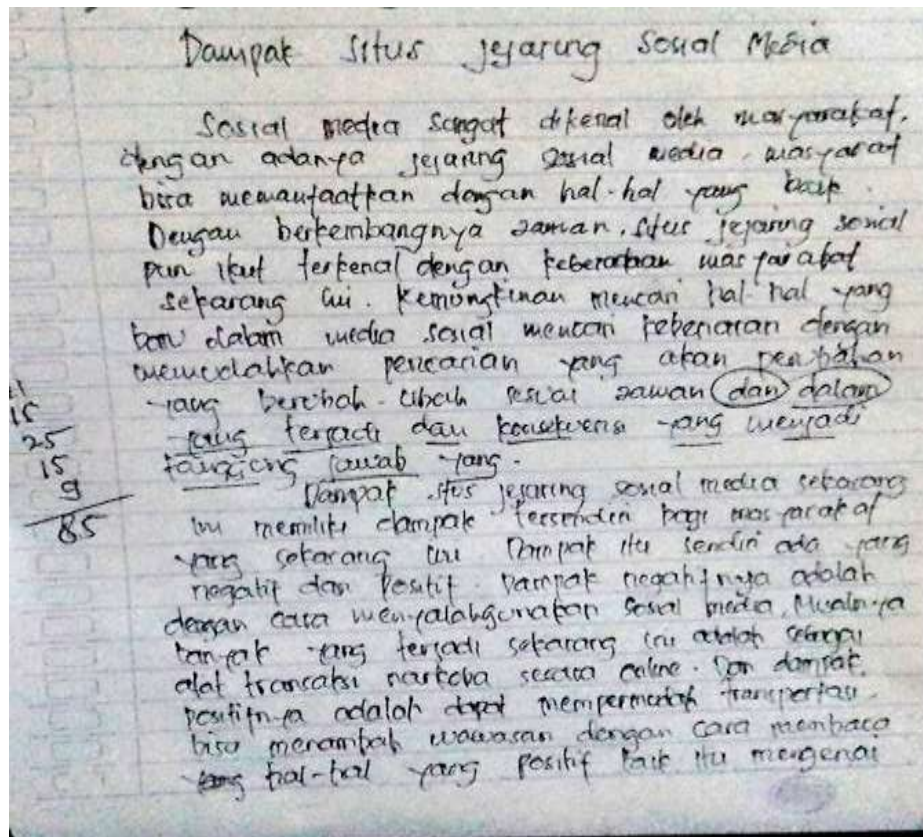 Dampak Situs jejaring Sosial Media
Sosial media sangat dikenal oleh masyarakat,
dengan adanya jejaring sosial media, masyarat
bisa memanfaatkan dengan hal-hal yang baik.
Dengan berkembangnya zaman, situs jejaring sosial
pun ikut terkenal dengan masyarakat
sekarang ini. Kemungkinan mencari hal-hal yang
baru dalam media sosial mencari kebenaran dengan
memudahkan pencarian yang akan
yang berubah-ubah sesuai zaman dan dalam
yang terjadi dan konsekuensi yang menjadi
tanggung jawab yang.
Dampak situs jejaring sosial media sekarang
ini memiliki dampak tersendiri bagi masyarakat
yang sekarang ini Dampak itu sendiri ada yang
negatif dan Positif. Dampak negatifnya adalah
dengan cara menyalahgunakan sosial media, Misalnya
banyak yang terjadi sekarang ini adalah sebagai
alat transaksi narkoba secara online. Dan dampak
positifnya adalah dapat mempermudah transportasi.
bisa menambah wawasan dengan cara membaca
yang hal-hal yang positif baik itu mengenai
15
25
15
9
85